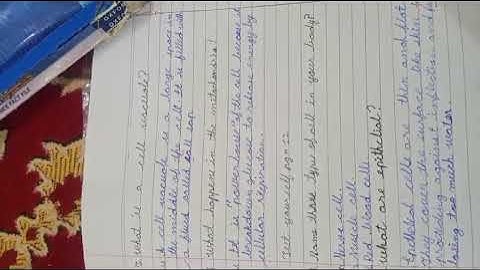 OXFO
OXFO
what is a cell vacuole?
A cell vacuole is a large space in
the middle of the cell. It is filled with
a fluid called cell sap
what happens in the mitochondria?
it is "power house" of the cell because it
breakdown glucose to release energy by
cellular respiration.
Test yourself pg no 12
Name three types of cell in your body?
Nerve cell
Muscle cell
Red blood cell
what are epithelial?
Epithelial cells are thin and flat
They cover the surface like skin
providing against infection and
losing too much water